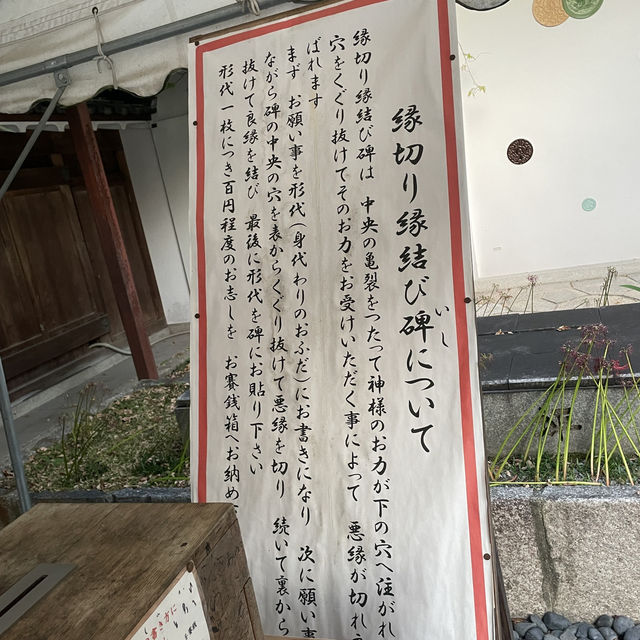 縁切り縁結び碑について
いし
縁切り縁結び碑は 中央の亀裂をつたって神様のお力が下の穴へ注がれ
穴をくぐり抜けてそのお力をお受けいただく事によって 悪縁が切れ
ばれます
まず お願い事を形代(身代わりのおふだ)にお書きになり 次に願い事
ながら碑の中央の穴を表からくぐり抜けて悪縁を切り 続いて裏から
抜けて良縁を結び 最後に形代を碑にお貼り下さい
形代一枚につき百円程度のお志しを お賽銭箱へお納め
書き方に